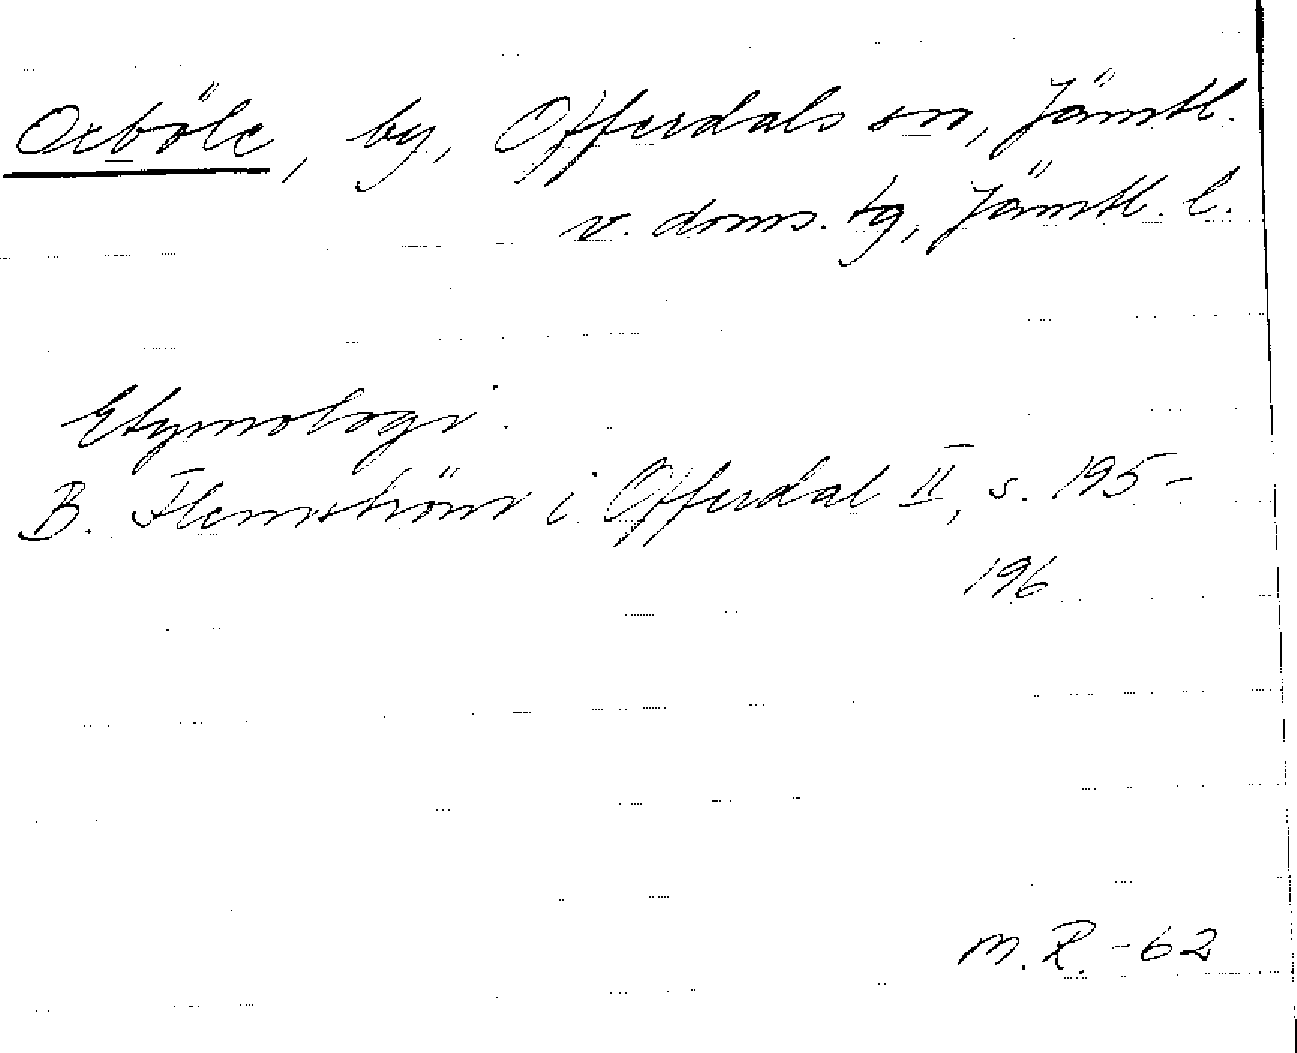 Oxböle, by, Offerdals sn, Jämtl.
v. doms. tg, Jämtl. l.
Etymologi.
B. Flemström i Offerdal II, s. 195-
196
M.R.-62